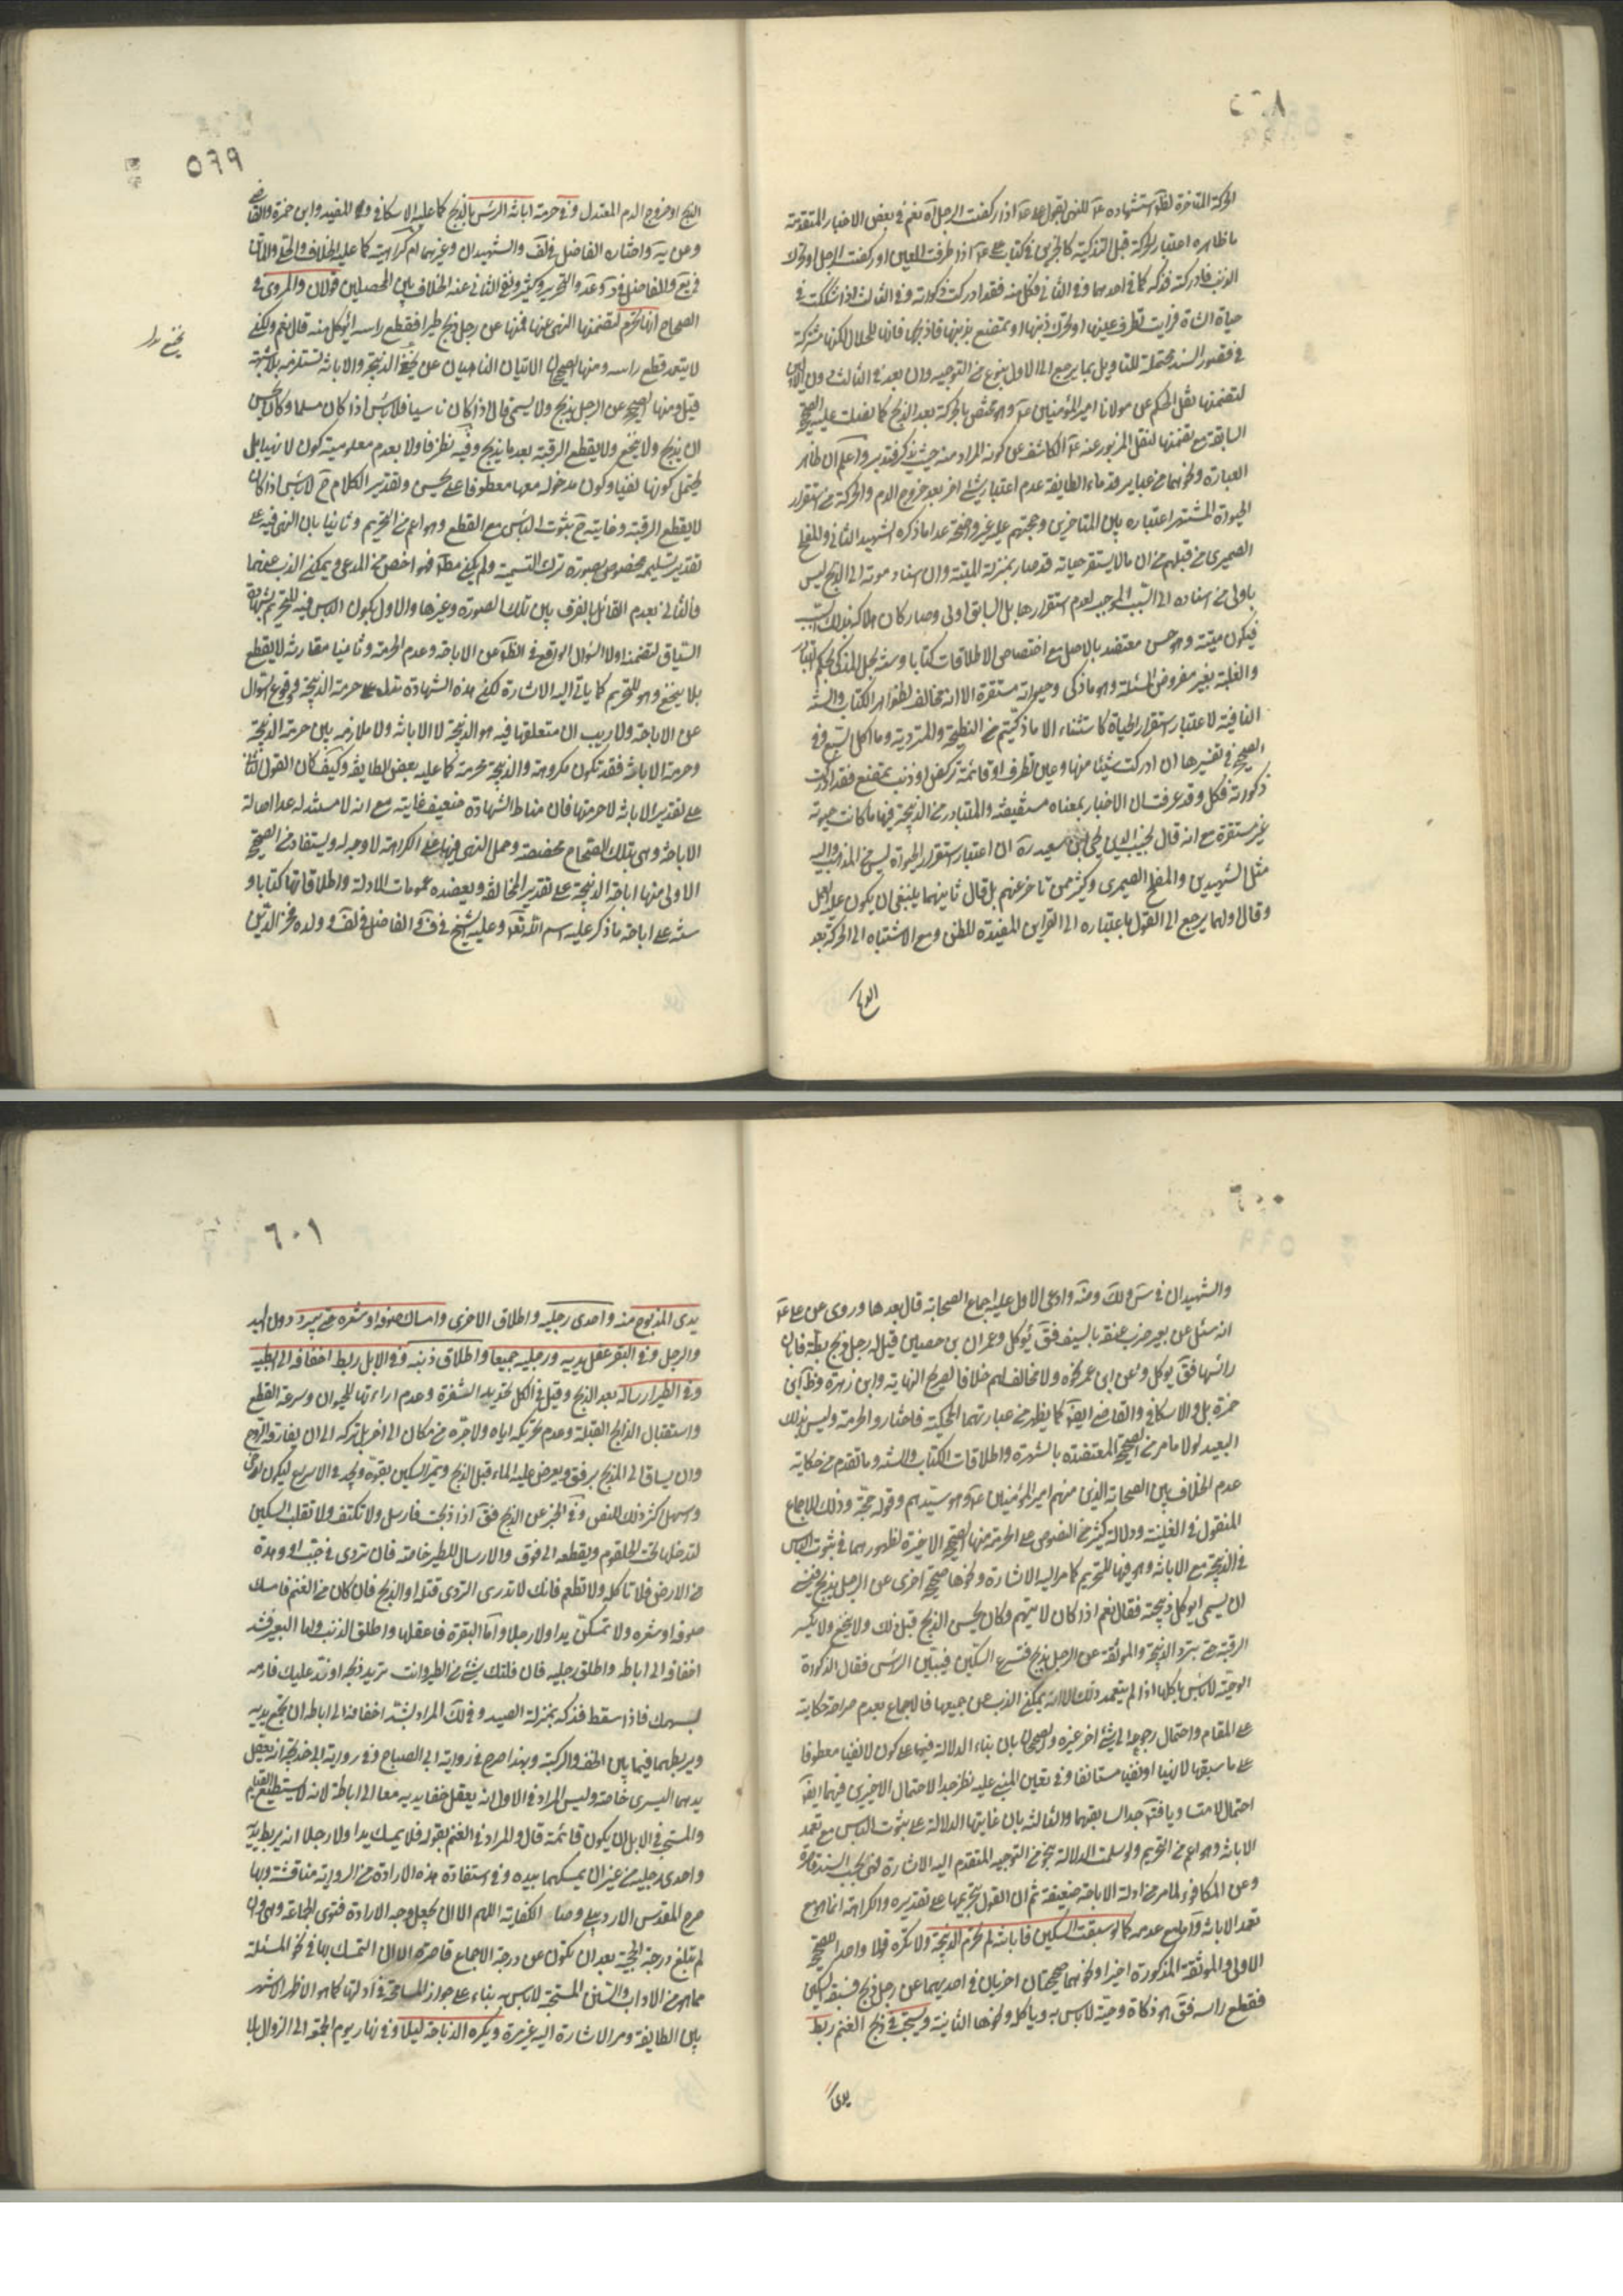 ٥٩٨
الحركة المتاخرة لظهور استشهاده ع للنهي بقول علي ع اذا ركضت الرجل آه نعم في بعض الاخبار المتقدمة
ما ظاهره اعتبار الحركة قبل التذكية كالخبرين في كتاب علي ع اذا طرفت العين او ركضت الرجل او تحرك
الذنب فادركته فذكه كما في احدهما وفي الثاني فكل منه فقد ادركت ذكوته وفي الثالث اذا شككت في
حياة الشاة فرايت تطرف عينها او تحرك ذنبها او تمصع بذنبها فاذبحها فانها لك حلال لكنها مشتركة
في قصور السند محتملة للتاويل بما يرجع الى الاول بنوع من التوجيه وان بعد في الثالث دون الاولين
لتضمنها نقل الحكم عن مولانا امير المؤمنين ع وهو مختص بالحركة بعد الذبح كما نصت عليه الصحيح
السابقة مع تضمنها لنقل المزبور عنه ع الكاشف عن كون المراد منه حيث يذكر فتدبر واعلم ان ظاهر
العبارة ونحوها من عباير قدماء الطايفة عدم اعتبار شئ اخر بعد خروج الدم والحركة من استقرار
الحيوة المشتهر اعتباره بين المتاخرين وحجتهم عليه غير واضحة عدا ما ذكره الشهيد الثاني والمفلح
الصيمري من قبلهم من ان ما لا يستقر حياته قد صار بمنزلة الميتة وان اسناد موته الى الذبح ليس
باولى من اسناده الى السبب الموجب لعدم استقرارها بل السابق اولى وصار كان هلاكه بذلك السبب
فيكون ميتة وهو حسن معتضد بالاصل مع اختصاص الاطلاقات كتابا وسنة بحل المذكى بحكم التبادر
والغلبة بغير مفروض المسئلة وهو ما ذكي وحيوته مستقرة الا انه مخالف لظواهر الكتاب والسنة
النافية لاعتبار استقرار الحياة كاستثناء الا ما ذكيتم من النطيحة والمتردية وما اكل السبع وفي
الصحيح في تفسيرها ان ادركت شيئا منها وعين تطرف او قائمة تركض او ذنب يمصع فقد ادركت
ذكوته فكل وقد عرفت ان الاخبار بمعناه مستفيضة والمتبادر من الذبيحة فيها ما كانت حيوته
غير مستقرة مع انه قال نجيب الدين يحيى بن سعيد ره ان اعتبار استقرار الحيوة ليس من المذهب واليه
مثل الشهيدين والمفلح الصيمري وكثير ممن تاخر عنهم بل قال ثانيهما ينبغي ان يكون عليه العمل
وقال اولهما يرجع الى القول باعتباره الى القراين المفيدة للظن ومع الاشتباه الى الحركة بعد
الذبح
٥٩٩
الذبح او خروج الدم المعتدل وفي حرمة ابانة الراس بالذبح كما عليه الاسكافي والمفيد وابن حمزة والقاضي
وعن يه واختاره الفاضل في لف والشهيدان وغيرهما ام كراهيته كما عليه الخلاف والحلي والماتن
في يع والفاضل في د وعد والتحرير وكثير ونفى الثاني عنه الخلاف بين المحصلين قولان والمروي في
الصحاح انها تحرم لتضمنها النهي عنها فمنها عن رجل ذبح طيرا فقطع راسه ايؤكل منه قال نعم ولكن
لا يتعمد قطع راسه ومنها الصحيحان الاتيان الناهيان عن نخع الذبيحة والابانة تستلزمه بلا شبهة
قيل ومنها الصحيح عن الرجل يذبح ولا يسمي قال اذا كان ناسيا فلا باس اذا كان مسلما وكان يحسن
ان يذبح ولا ينخع ولا يقطع الرقبة بعد ما يذبح وفيه نظر فاولا بعدم معلومية كون لا نهيا بل
يحتمل كونها نفيا وكون مدخوله معها معطوفا على يحسن وتقدير الكلام ح لا باس اذا كان
لا يقطع الرقبة وغايته ح ثبوت الباس مع القطع وهو اعم من التحريم وثانيا بان النهي فيه على
تقدير تسليمه مخصوص بصورة ترك التسمية ولم يكن مطلقا فهو اخص من المدعى ويمكن الذب عنهما
فالثاني بعدم القائل بالفرق بين تلك الصورة وغيرها والاول بكون الباس فيه للتحريم بشهادة
السياق لتضمنه اولا السؤال الواقع في الظاهر عن الاباحة وعدم الحرمة وثانيا مقارنة لا يقطع
بلا ينخع وهو للتحريم كما ياتي اليه الاشارة لكن هذه الشهادة تدل على حرمة الذبيحة لوقوع السؤال
عن الاباحة ولا ريب ان متعلقها فيه هو الذبيحة لا الابانة ولا ملازمة بين حرمة الذبيحة
وحرمة الابانة فقد تكون مكروهة والذبيحة محرمة كما عليه بعض الطايفة وكيف كان القول الثاني
على تقدير الابانة لا حرمتها فان مناط الشهادة ضعيف غايته مع انه لا مستند له عدا اصالة
الاباحة وهي بتلك الصحاح مخصصة وحمل النهي فيها على الكراهة لا وجه له ويستفاد من الصحيح
الاولى منها اباحة الذبيحة على تقدير المخالفة ويعضده عمومات الادلة واطلاقاتها كتابا و
سنة على اباحة ما ذكر عليه اسم الله تعالى وعليه الشيخ في ف والفاضل في لف وولده فخر الدين
ينخع بدل
٦٠٠
والشهيدان في س ولك وضه وادعى الاول عليه اجماع الصحابة قال بعدها وروى عن علي ع
انه سئل عن بعير ضرب عنقه بالسيف فق يؤكل وعمران بن حصين قيل له رجل ذبح بطة فابان
راسها فق يوكل وعن ابن عمر نحوه ولا مخالف لهم خلافا لصريح النهاية وابن زهرة وظ ابن
حمزة بل والاسكافي والقاضي ايضا كما يظهر من عبارتهما المحكية فاختاروا الحرمة وليس بذلك
البعيد لولا ما مر من الصحيح المعتضدة بالشهرة واطلاقات الكتاب والسنة وما تقدم من حكاية
عدم الخلاف بين الصحابة الذين منهم امير المؤمنين ع وهو سيدهم وقوله حجة وذلك للاجماع
المنقول في الغنية ودلالة كثير من النصوص على الحرمة منها الصحيح الاخيرة لظهورهما في ثبوت الباس
في الذبيحة مع الابانة وهو فيها للتحريم كما مر اليه الاشارة ونحوها صحيح اخرى عن الرجل يذبح فينسى
ان يسمي ايوكل ذبيحته فقال نعم اذا كان لا يتهم وكان يحسن الذبح قبل ذلك ولا ينخع ولا يكسر
الرقبة حتى تبرد الذبيحة والموثقة عن الرجل يذبح فتسرع السكين فتبين الراس فقال الذكوة
الوحية لا باس باكلها اذا لم يتعمد ذلك الا انه يمكن الذب عن جميعها فالاجماع بعدم صراحة حكايته
على المقام واحتمال رجوعه الى شئ اخر غيره والصحيحان بان بناء الدلالة فيهما على كون لا نفيا معطوفا
على ما سبقها لا نهيا او نفيا مستانفا وفي تعيين المبني عليه نظر جدا لاحتمال الاخيرين فيهما ايضا
احتمالا متساويا فتوجدا لسابقهما والثالثة بان غايتها الدلالة على ثبوت الباس مع تعمد
الابانة وهو اعم من التحريم ولو سلمت الدلالة بنحو من التوجيه المتقدم اليه الاشارة فهي بحسب السند قاصرة
وعن المكافئ لما مر من ادلة الاباحة ضعيفة ثم ان القول بتحريمها على تقديره والكراهة انما هو مع
تعمد الابانة واما مع عدمه كما لو سبقت السكين فابانته لم تحرم الذبيحة ولا تكره قولا واحدا للصحيح
الاولى والموثقة المذكورة اخيرا ونحوهما صحيحتان اخريان في احديهما عن رجل ذبح فسبقه السكين
فقطع راسه فق هو ذكاة وحية لا باس به وياكله ونحوها الثانية ويستحب في ذبح الغنم ربط
يدي
٦٠١
يدي المذبوح منه واحدى رجليه واطلاق الاخرى وامساك صوفه او شعره حتى يبرد دون اليد
والرجل وفي البقر عقل يديه ورجليه جميعا واطلاق ذنبه وفي الابل ربط اخفافه الى ابطيه
وفي الطير ارساله بعد الذبح وقيل في الكل تحديد الشفرة وعدم اراءتها للحيوان وسرعة القطع
واستقبال الذابح القبلة وعدم تحريكه اياه ولا جره من مكان الى اخر بل تركه الى ان يفارقه الروح
وان يساق الى المذبح برفق ويعرض عليه الماء قبل الذبح ويمر السكين بقوة ويجد في الاسراع ليكون اوحى
واسهل كثر ذلك للنص وفي الخبر عن الذبح فق اذا ذبحت فارسل ولا تكتف ولا تقلب السكين
لتدخلها تحت الحلقوم ويقطعه الى فوق والارسال للطير خاصة فان تردى في جب او وهدة
من الارض فلا تاكله ولا تطعم فانك لا تدري التردي قتله او الذبح فان كان من الغنم فامسك
صوفه او شعره ولا تمسكن يدا ولا رجلا واما البقرة فاعقلها واطلق الذنب واما البعير فشد
اخفافه الى اباطه واطلق رجليه فان فلتك شئ من الطير وانت تريد ذبحه او ند عليك فارمه
بسهمك فاذا سقط فذكه بمنزلة الصيد وفي لك المراد بشد اخفافه الى اباطه ان يجمع يديه
ويربطهما فيما بين الخف والركبة وبهذا صرح في رواية ابي الصباح وفي رواية ابي خديجة انه يعقل
يدها اليسرى خاصة وليس المراد في الاول انه يعقل خفا يديه معا الى اباطه لانه لا يستطيع القيام
والمستحب في الابل ان يكون قائمة قال والمراد في الغنم بقوله فلا يمسك يدا ولا رجلا انه يربط يديه
واحدى رجليه من غير ان يمسكهما بيده وفي استفادة هذه الارادة من الرواية مناقشة وبها
صرح المقدس الاردبيلي وصاحب الكفاية اللهم الا ان يجعل وجه الارادة فتوى الجماعة وهي وان
لم تبلغ درجة الحجية بعد ان تكون عن درجة الاجماع قاصرة الا ان التمسك بها في نحو المسئلة
مما هو من الاداب والسنن المستحبة لا باس به بناء على جواز المسامحة في ادلتها كما هو الاظهر الاشهر
بين الطايفة ومر الاشارة اليه غير مرة ويكره الذباحة ليلا وفي نهار يوم الجمعة الى الزوال بلا